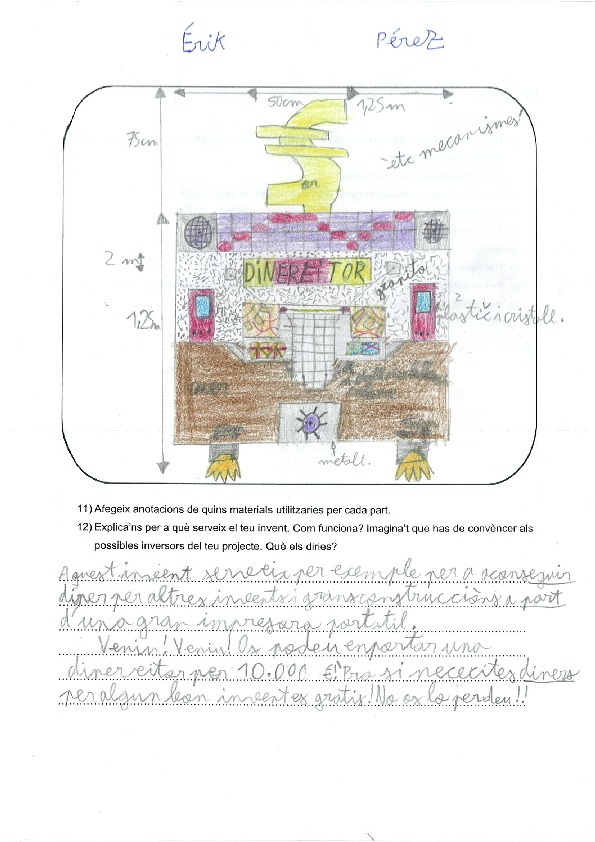 Érik Pérez
50cm 1,25m
75cm
etc mecanismes
or
2 m
DINEREITOR
granito
1,25m
plàstic i cristall.
metall.
11) Afegeix anotacions de quins materials utilitzaries per cada part.
12) Explica'ns per a què serveix el teu invent. Com funciona? Imagina't que has de convèncer als
possibles inversors del teu projecte. Què els diries?
Aquest invent serveix per exemple per a aconseguir
diner per altres invents i grans construcciòns a part
d'una gran impresara portatil.
Venin! Veniu! Os podeu enportar una
dinereitor per 10.000 €! Pro si nececites diners
per algun bon invent es gratis! No os lo perdeu!!